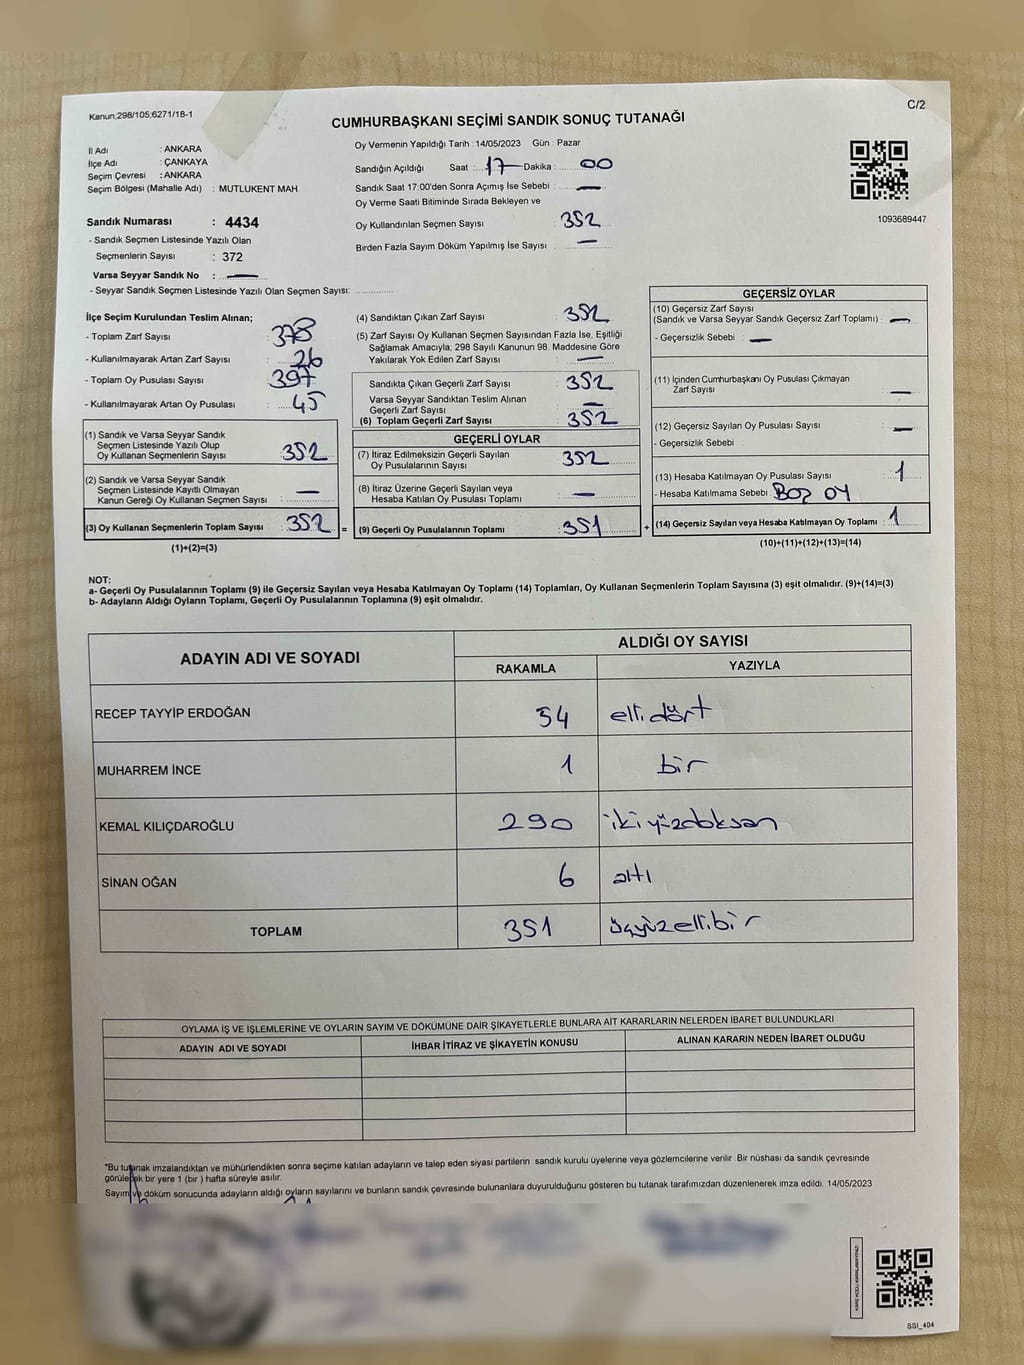 Kanun,298/105;6271/18-1
C/2
CUMHURBAŞKANI SEÇİMİ SANDIK SONUÇ TUTANAĞI
İl Adı : ANKARA
İlçe Adı : ÇANKAYA
Seçim Çevresi : ANKARA
Seçim Bölgesi (Mahalle Adı) : MUTLUKENT MAH.
Sandık Numarası : 4434
- Sandık Seçmen Listesinde Yazılı Olan
Seçmenlerin Sayısı : 372
Varsa Seyyar Sandık No : —
- Seyyar Sandık Seçmen Listesinde Yazılı Olan Seçmen Sayısı: ..............
Oy Vermenin Yapıldığı Tarih : 14/05/2023 Gün : Pazar
Sandığın Açıldığı Saat : 17 Dakika : 00
Sandık Saat 17:00'den Sonra Açımış İse Sebebi : —
Oy Verme Saati Bitiminde Sırada Bekleyen ve
Oy Kullandırılan Seçmen Sayısı : 352
Birden Fazla Sayım Döküm Yapılmış İse Sayısı : —
1093689447
İlçe Seçim Kurulundan Teslim Alınan;
- Toplam Zarf Sayısı : 378
- Kullanılmayarak Artan Zarf Sayısı : 26
- Toplam Oy Pusulası Sayısı : 397
- Kullanılmayarak Artan Oy Pusulası : 45
(1) Sandık ve Varsa Seyyar Sandık
Seçmen Listesinde Yazılı Olup
Oy Kullanan Seçmenlerin Sayısı : 352
(2) Sandık ve Varsa Seyyar Sandık
Seçmen Listesinde Kayıtlı Olmayan
Kanun Gereği Oy Kullanan Seçmen Sayısı : —
(3) Oy Kullanan Seçmenlerin Toplam Sayısı : 352 =
(1)+(2)=(3)
(4) Sandıktan Çıkan Zarf Sayısı : 352
(5) Zarf Sayısı Oy Kullanan Seçmen Sayısından Fazla İse, Eşitliği
Sağlamak Amacıyla, 298 Sayılı Kanunun 98. Maddesine Göre
Yakılarak Yok Edilen Zarf Sayısı : —
Sandıkta Çıkan Geçerli Zarf Sayısı : 352
Varsa Seyyar Sandıktan Teslim Alınan
Geçerli Zarf Sayısı : —
(6) Toplam Geçerli Zarf Sayısı : 352
GEÇERLİ OYLAR
(7) İtiraz Edilmeksizin Geçerli Sayılan
Oy Pusulalarının Sayısı : 352
(8) İtiraz Üzerine Geçerli Sayılan veya
Hesaba Katılan Oy Pusulası Toplamı : —
(9) Geçerli Oy Pusulalarının Toplamı : 351 +
GEÇERSİZ OYLAR
(10) Geçersiz Zarf Sayısı
(Sandık ve Varsa Seyyar Sandık Geçersiz Zarf Toplamı) : —
- Geçersizlik Sebebi : —
(11) İçinden Cumhurbaşkanı Oy Pusulası Çıkmayan
Zarf Sayısı : —
(12) Geçersiz Sayılan Oy Pusulası Sayısı : —
- Geçersizlik Sebebi :
(13) Hesaba Katılmayan Oy Pusulası Sayısı : 1
- Hesaba Katılmama Sebebi : BOŞ OY
(14) Geçersiz Sayılan veya Hesaba Katılmayan Oy Toplamı : 1
(10)+(11)+(12)+(13)=(14)
NOT:
a- Geçerli Oy Pusulalarının Toplamı (9) ile Geçersiz Sayılan veya Hesaba Katılmayan Oy Toplamı (14) Toplamları, Oy Kullanan Seçmenlerin Toplam Sayısına (3) eşit olmalıdır. (9)+(14)=(3)
b- Adayların Aldığı Oyların Toplamı, Geçerli Oy Pusulalarının Toplamına (9) eşit olmalıdır.
ADAYIN ADI VE SOYADI
ALDIĞI OY SAYISI
RAKAMLA YAZIYLA
RECEP TAYYİP ERDOĞAN 54 elli dört
MUHARREM İNCE 1 bir
KEMAL KILIÇDAROĞLU 290 ikiyüzdoksan
SİNAN OĞAN 6 altı
TOPLAM 351 üçyüzellibir
OYLAMA İŞ VE İŞLEMLERİNE VE OYLARIN SAYIM VE DÖKÜMÜNE DAİR ŞİKAYETLERLE BUNLARA AİT KARARLARIN NELERDEN İBARET BULUNDUKLARI
ADAYIN ADI VE SOYADI İHBAR İTİRAZ VE ŞİKAYETİN KONUSU ALINAN KARARIN NEDEN İBARET OLDUĞU
*Bu tutanak imzalandıktan ve mühürlendikten sonra seçime katılan adayların ve talep eden siyasi partilerin sandık kurulu üyelerine veya gözlemcilerine verilir. Bir nüshası da sandık çevresinde
görülecek bir yere 1 (bir) hafta süreyle asılır.
Sayım ve döküm sonucunda adayların aldığı oyların sayılarını ve bunların sandık çevresinde bulunanlara duyurulduğunu gösteren bu tutanak tarafımızdan düzenlenerek imza edildi. 14/05/2023
SSI_404